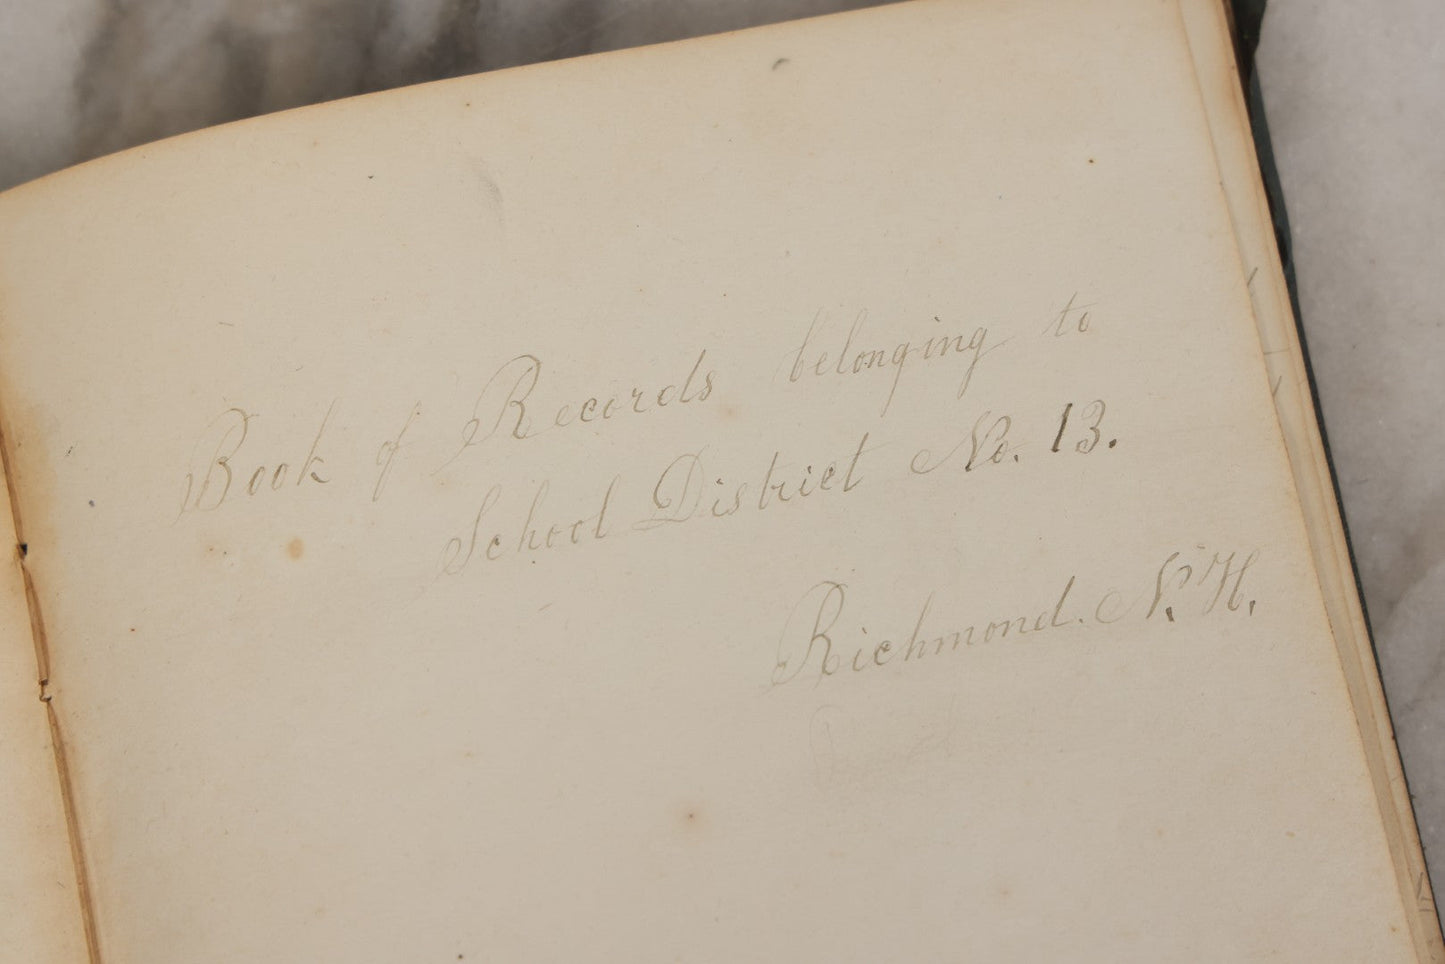 Book of Records belonging to
School District No. 13.
Richmond. N. H.